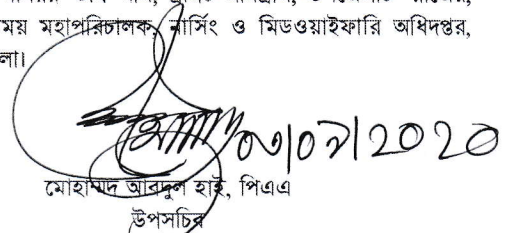 ময় মহাপরিচালক, নার্সিং ও মিডওয়াইফারি অধিদপ্তর,
লা।
০৩|০৯|২০২০
মোহাম্মদ আবদুল হাই, পিএএ
উপসচিব